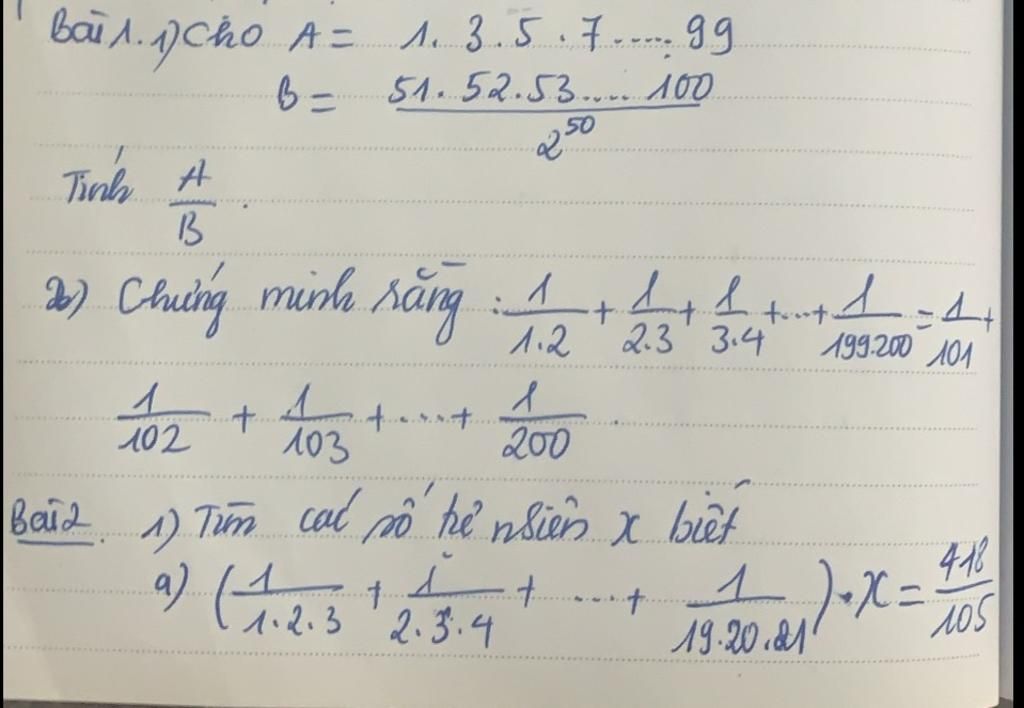 Bài 1. 1) Cho A = 1. 3. 5. 7. .... 99
B = 51. 52. 53 .... 100 / 2^50
Tính A/B .
2) Chứng minh rằng : 1/1.2 + 1/2.3 + 1/3.4 + ... + 1/199.200 = 1/101 +
1/102 + 1/103 + .... + 1/200 .
Bài 2. 1) Tìm các số tự nhiên x biết
a) (1/1.2.3 + 1/2.3.4 + .... + 1/19.20.21) . x = 418/105